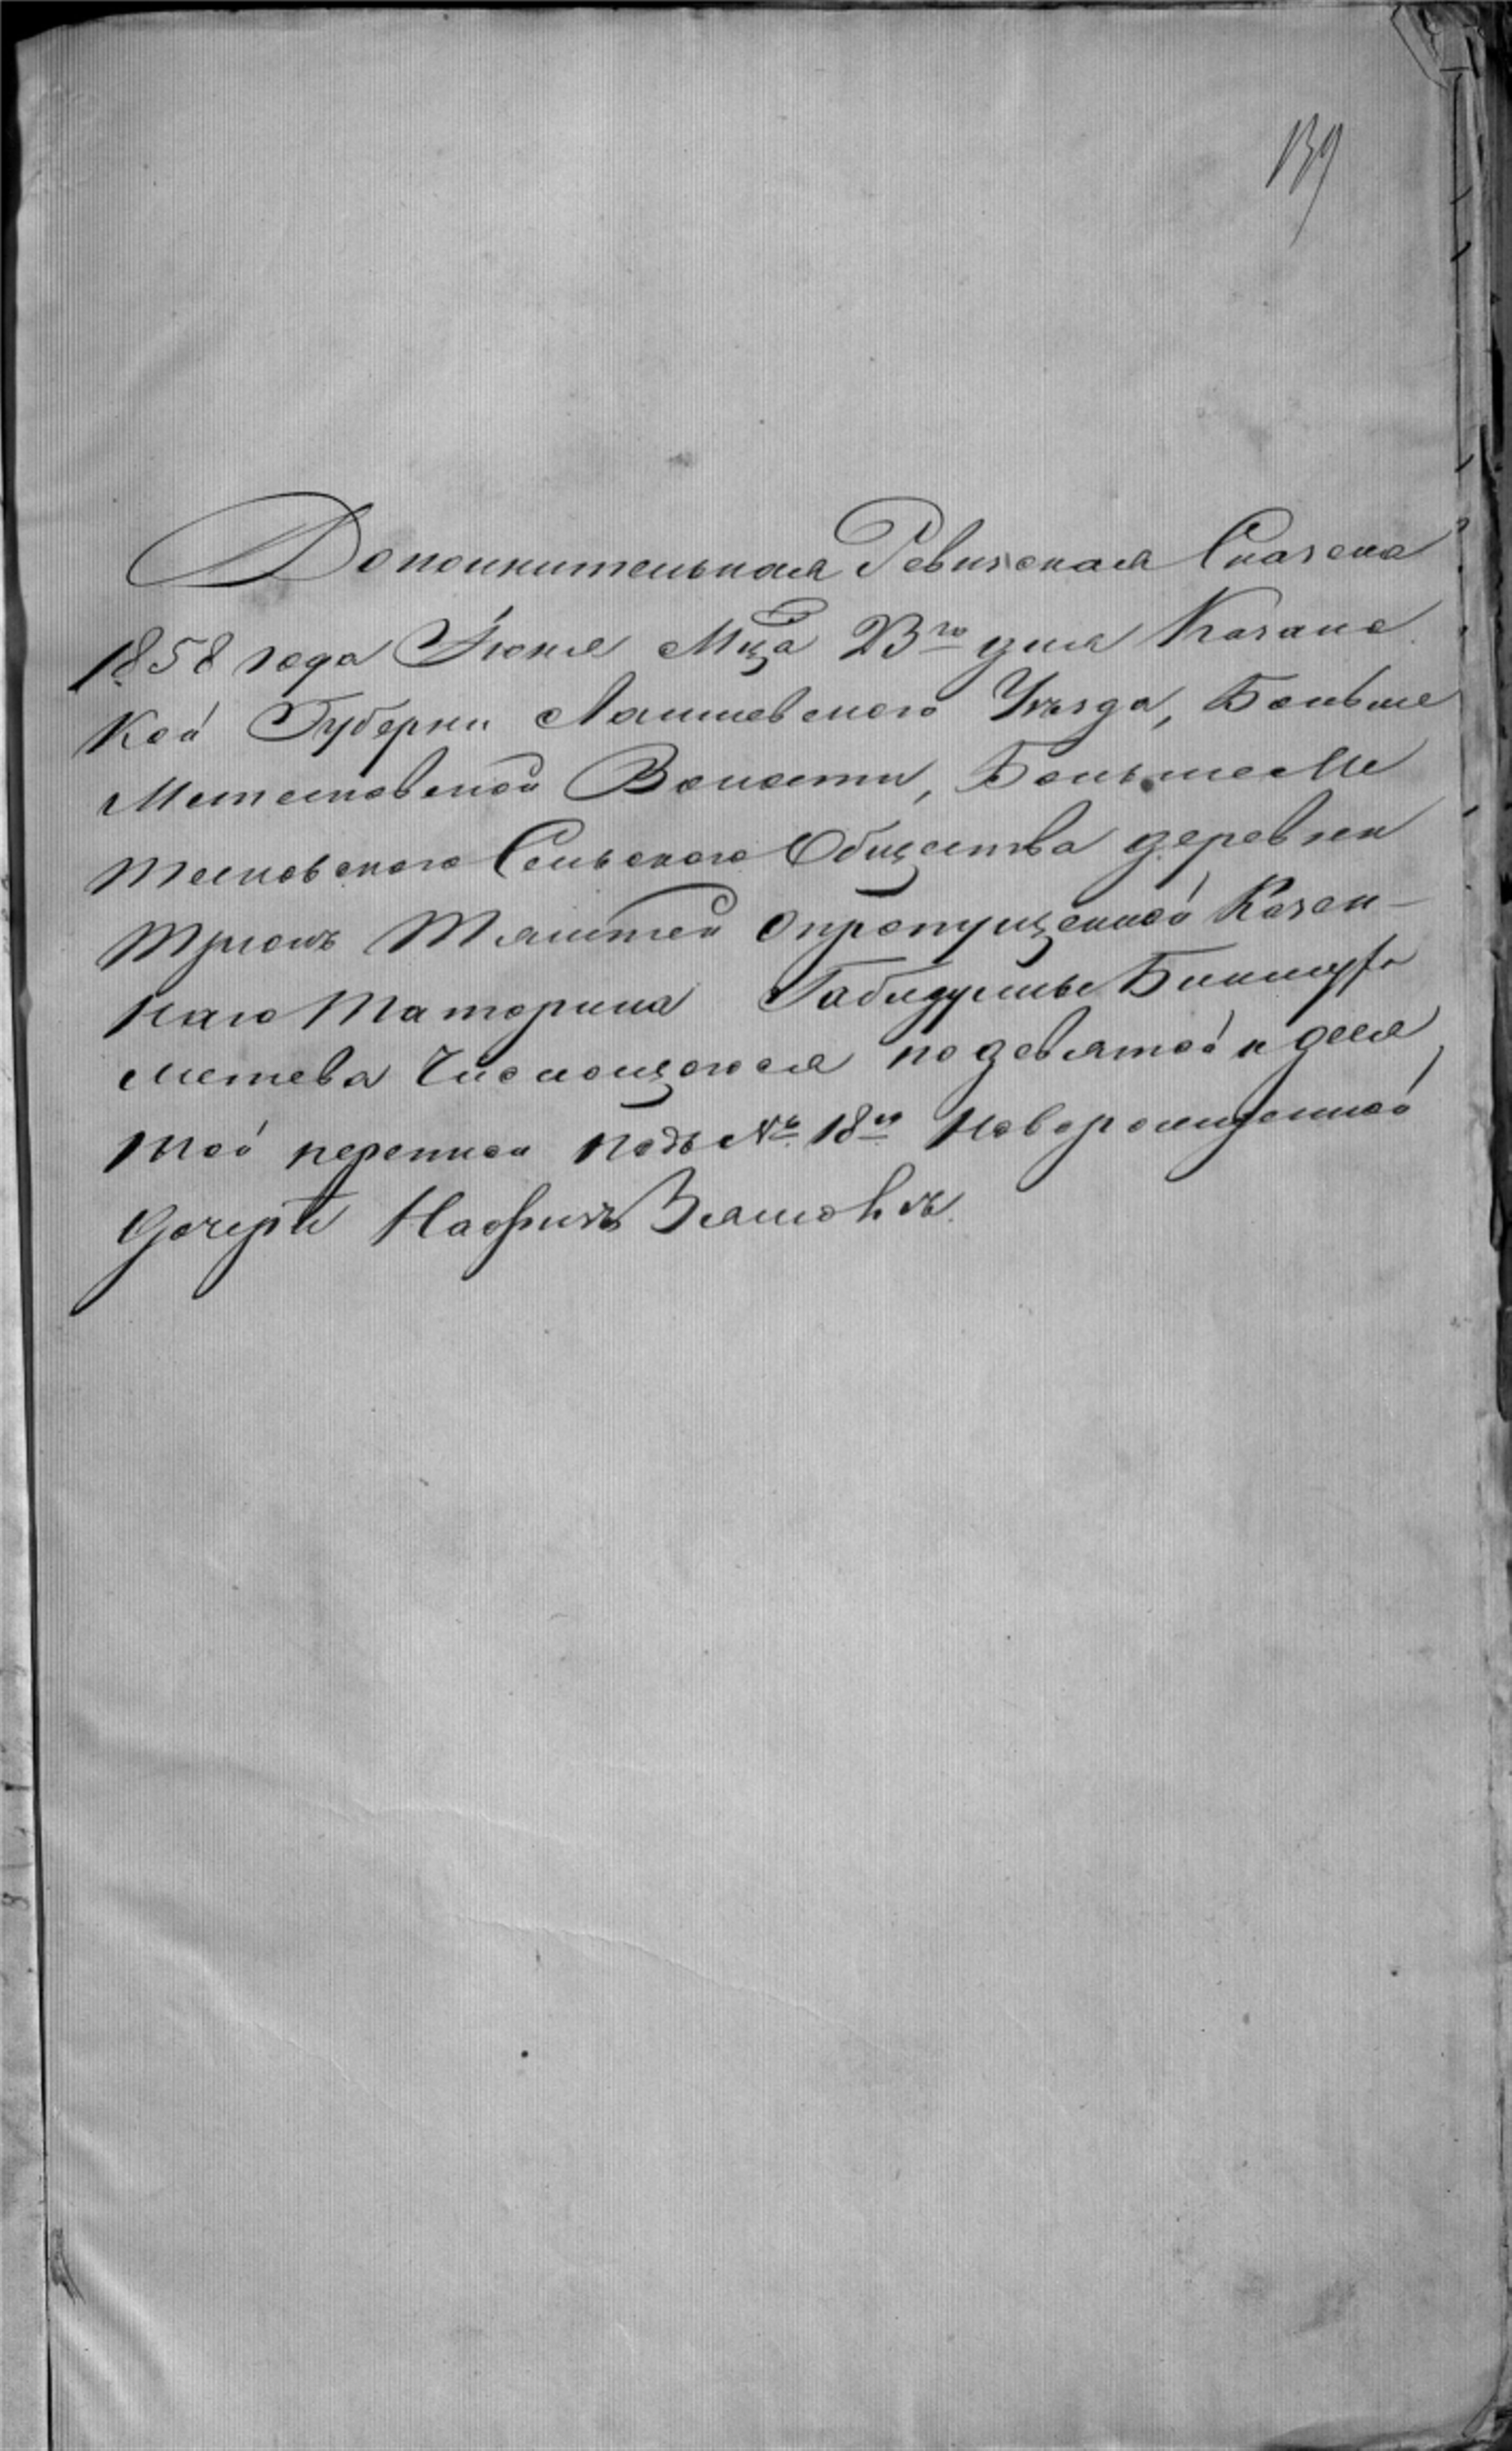 139
Дополнительная Ревизская Сказска
1858 года Іюня Мца 23го дня Казанс
кой Губерни Лаишевского Уѣзда, Больше
Метесковской Волости, Больше Ме
тесковского Сельского Общества деревни
Трюкъ Тямтей опропущенной Казен-
наго Таторина Габидуллы Бикмуха
метева Числющогося по девятой ндея
той перепеси подъ № 18го Новорожденной
дочери Нафизѣ